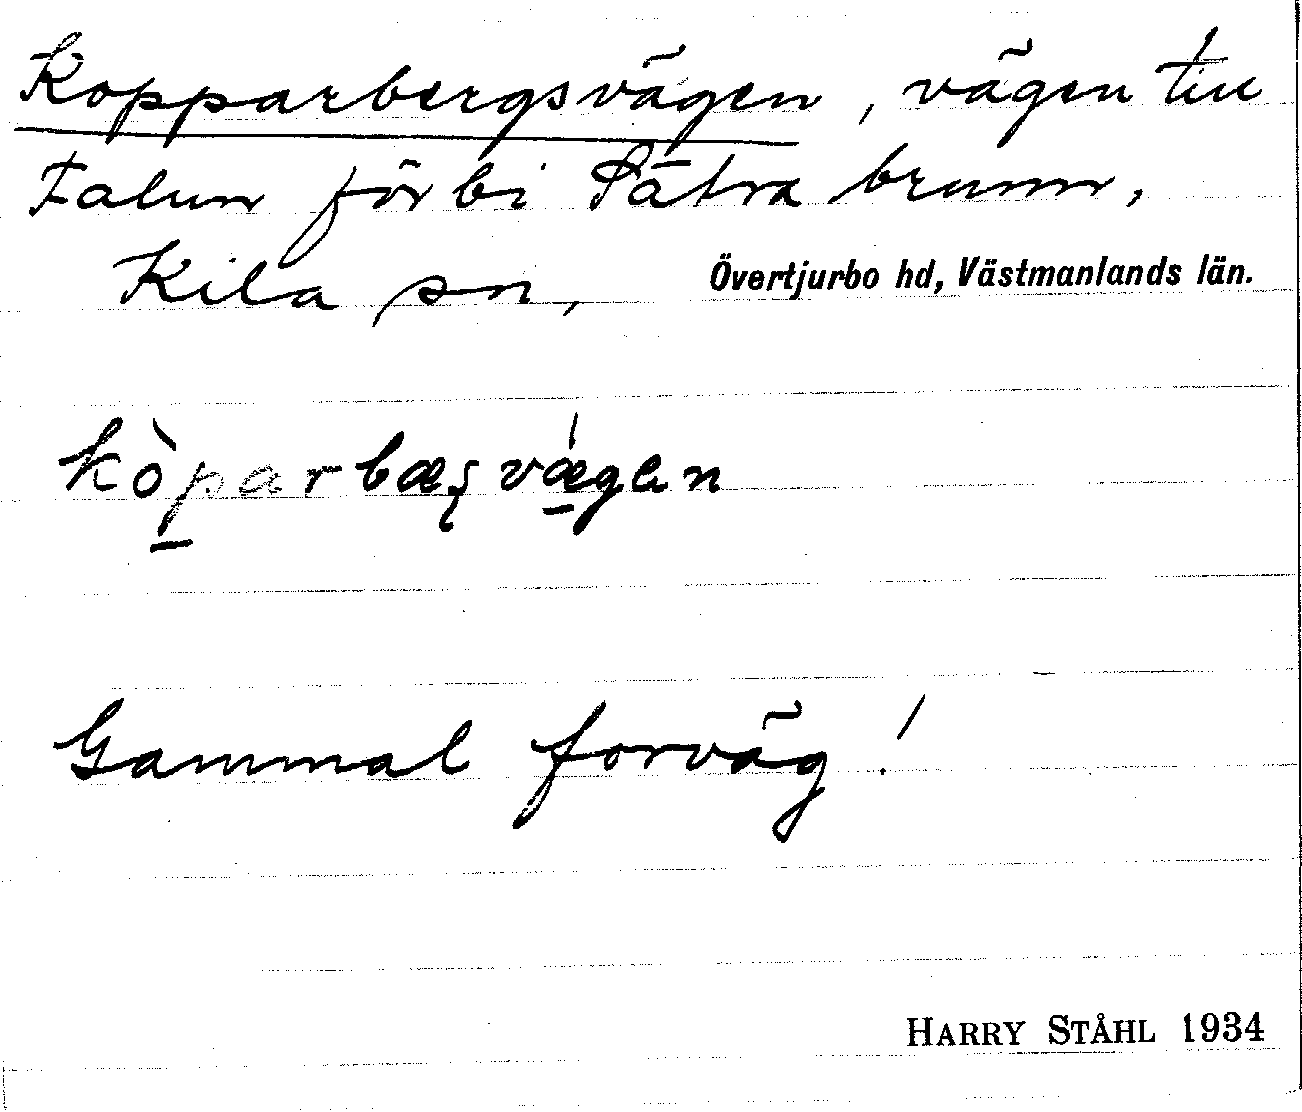 Kopparbergsvägen, vägen till
Falun förbi Sätra brunn,
Kila sn, Övertjurbo hd, Västmanlands län.
kòparbæʂvǽgen
Gammal forväg!
HARRY STÅHL 1934